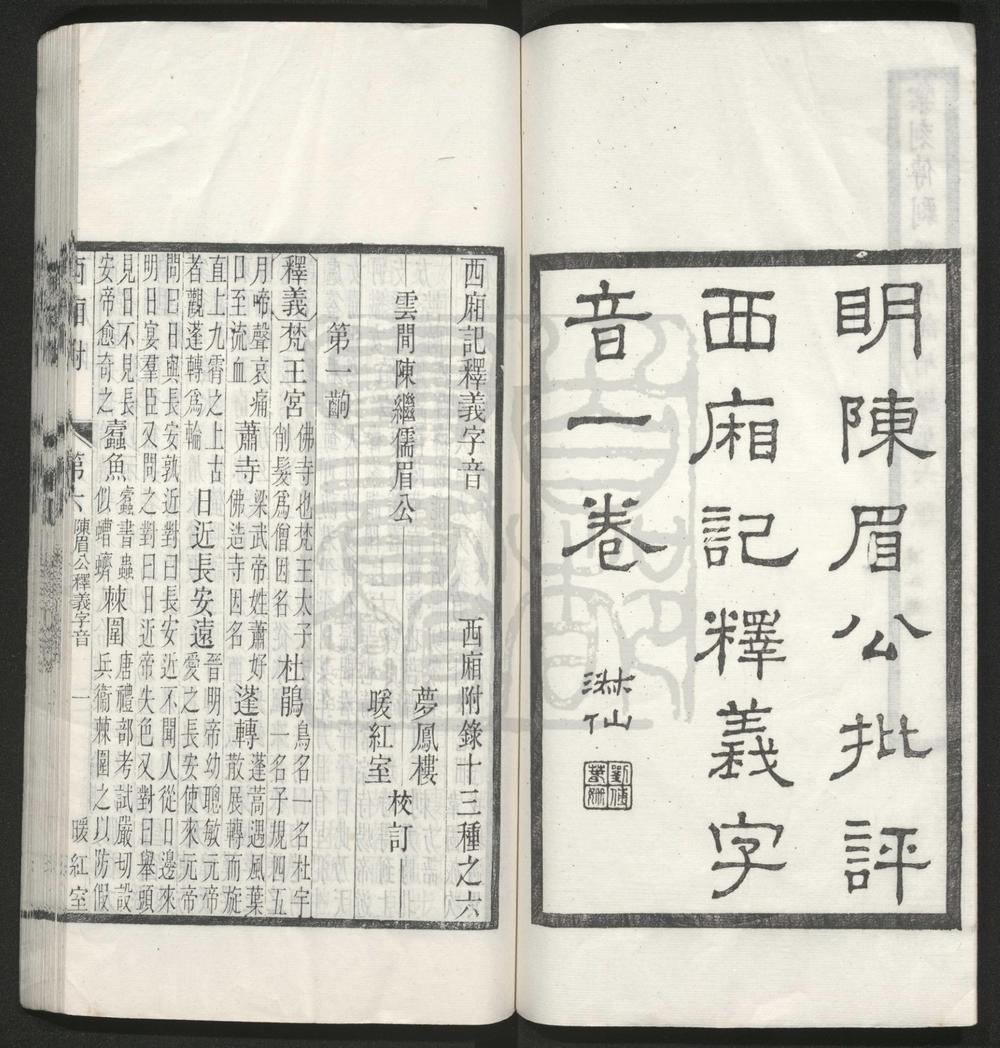 明陳眉公批評
西廂記釋義字
音一卷
淋仙
劉傅春姍
西廂記釋義字音　西廂附錄十三種之六
雲間陳繼儒眉公　夢鳳樓　暖紅室　校訂
第一齣
釋義　梵王宮　佛寺也梵王太子削髮爲僧因名　杜鵑　鳥名一名杜宇一名子規四五
月啼聲哀痛口至流血　蕭寺　梁武帝姓蕭好佛造寺因名　蓬轉　蓬蒿遇風葉散展轉而旋
直上九霄之上古者觀蓬轉爲輪　日近長安遠　晉明帝幼聰敏元帝愛之長安使來元帝
問曰日與長安孰近對曰長安近不聞人從日邊來
明日宴羣臣又問之對曰日近帝失色又對曰舉頭
見日不見長安帝愈奇之　蠹魚　蠹書蟲似螬蠐　棘圍　唐禮部考試嚴切設兵衞棘圍之以防假
西廂附　第六　陳眉公釋義字音　一　暖紅室